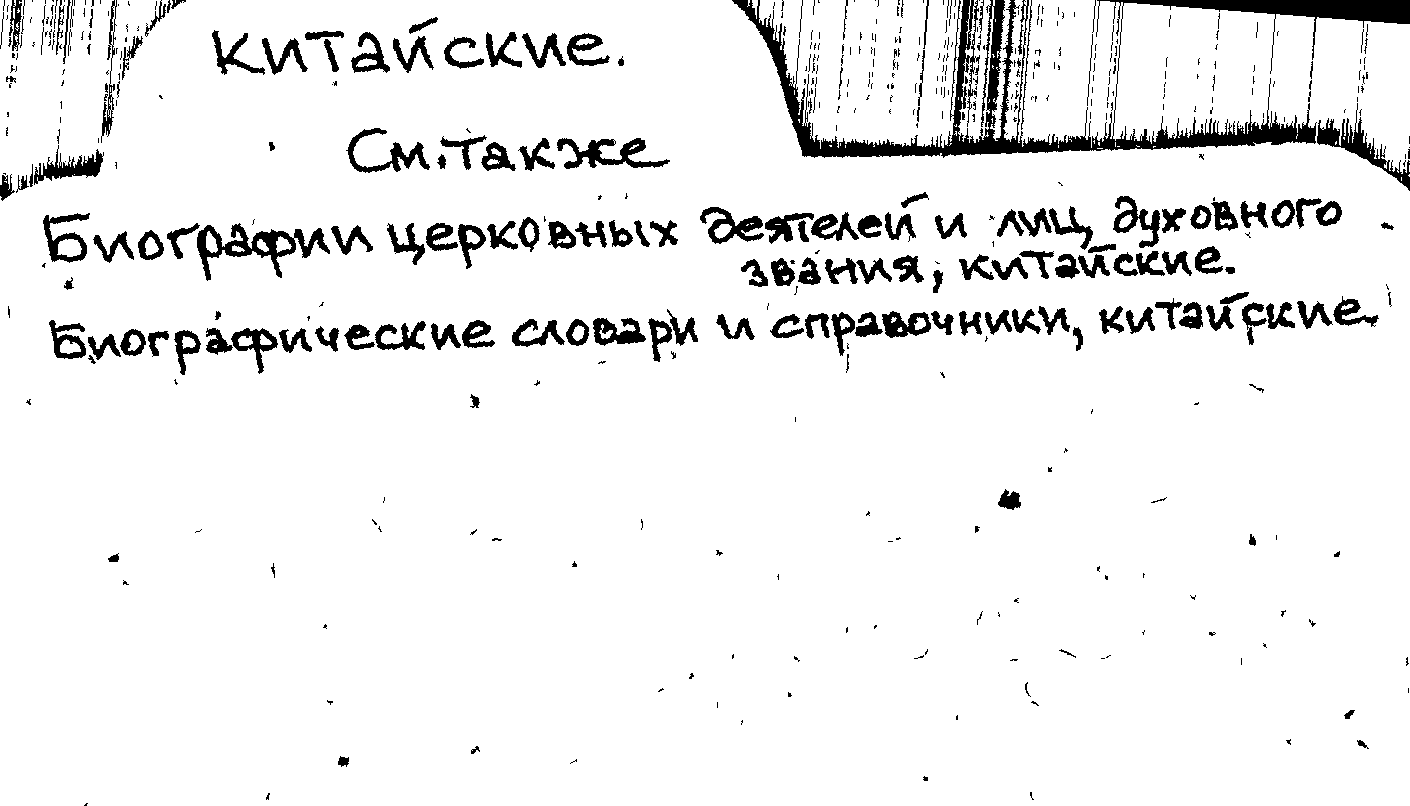 китайские.
См. также
Биографии церковных деятелей и лиц духовного
звания, китайские.
Биографические словари и справочники, китайские.